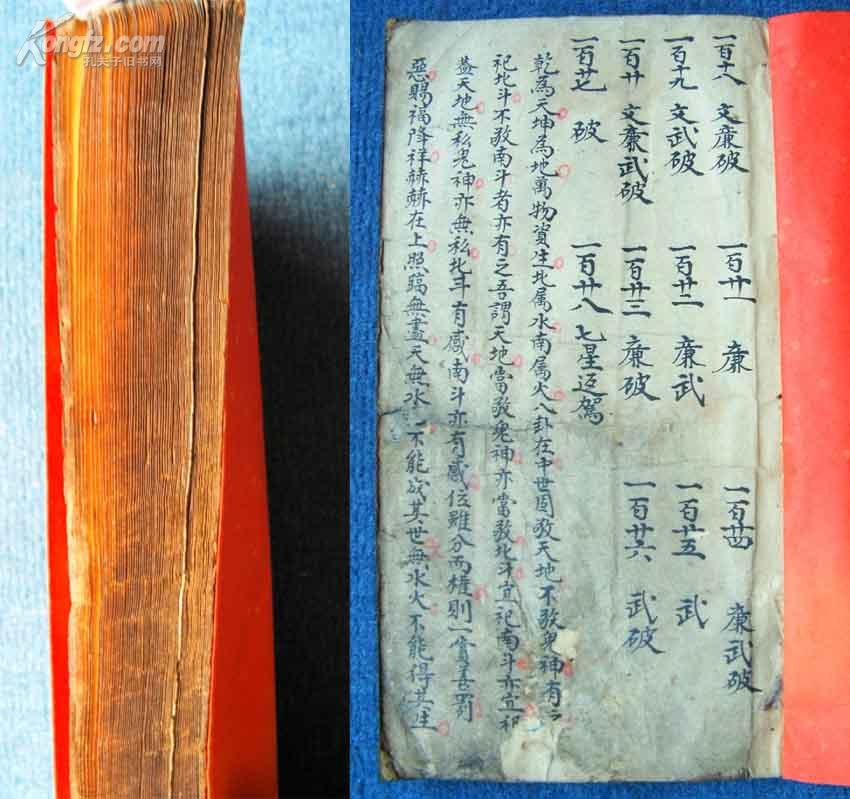 Kongfz.com
孔夫子旧书网
一百十八 文廉破
一百廿一 廉
一百廿四 廉武破
一百十九 文武破
一百廿二 廉武
一百廿五 武
一百廿 文廉武破
一百廿三 廉破
一百廿六 武破
一百廿七 破
一百廿八 七星返駕
乾為天坤為地萬物資生北属水南属火八卦在中世固敬天地不敬鬼神有之
祀北斗不敬南斗者亦有之吾謂天地當敬鬼神亦當敬北斗宜祀南斗亦宜祀
蓋天地無私鬼神亦無私北斗有感南斗亦有感位雖分而權則一賞善罰
惡賜福降祥赫赫在上照臨無盡天無水火不能成其世無水火不能得其生